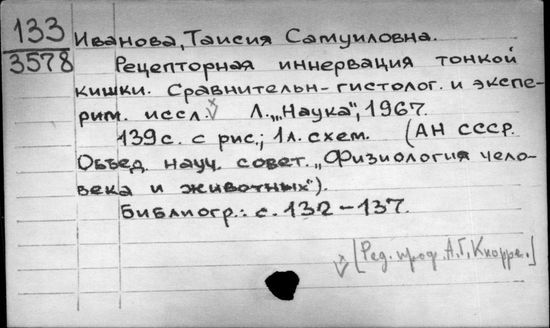 133
3578
Иванова, Таисия Самуиловна.
Рецепторная иннервация тонкой
кишки. Сравнительн-гистолог. и экспе-
рим. иссл. Л., „Наука", 1967.
139 с. с рис.; 1 л. схем. (АН СССР.
Объед. науч. совет. „Физиология чело-
века и животных").
Библиогр.: с. 132-137.
[Ред. проф. А.Г. Кнорре.]